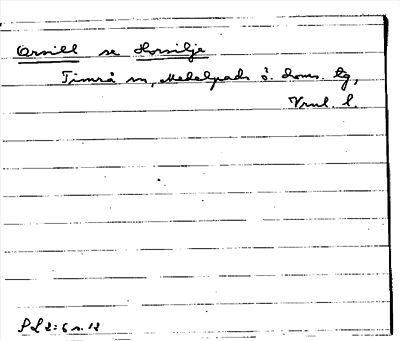 Orsill se Horsilje
Timrå sn, Medelpads ö. doms. tg,
Vrnl. l.
P L 2:6 s. 12